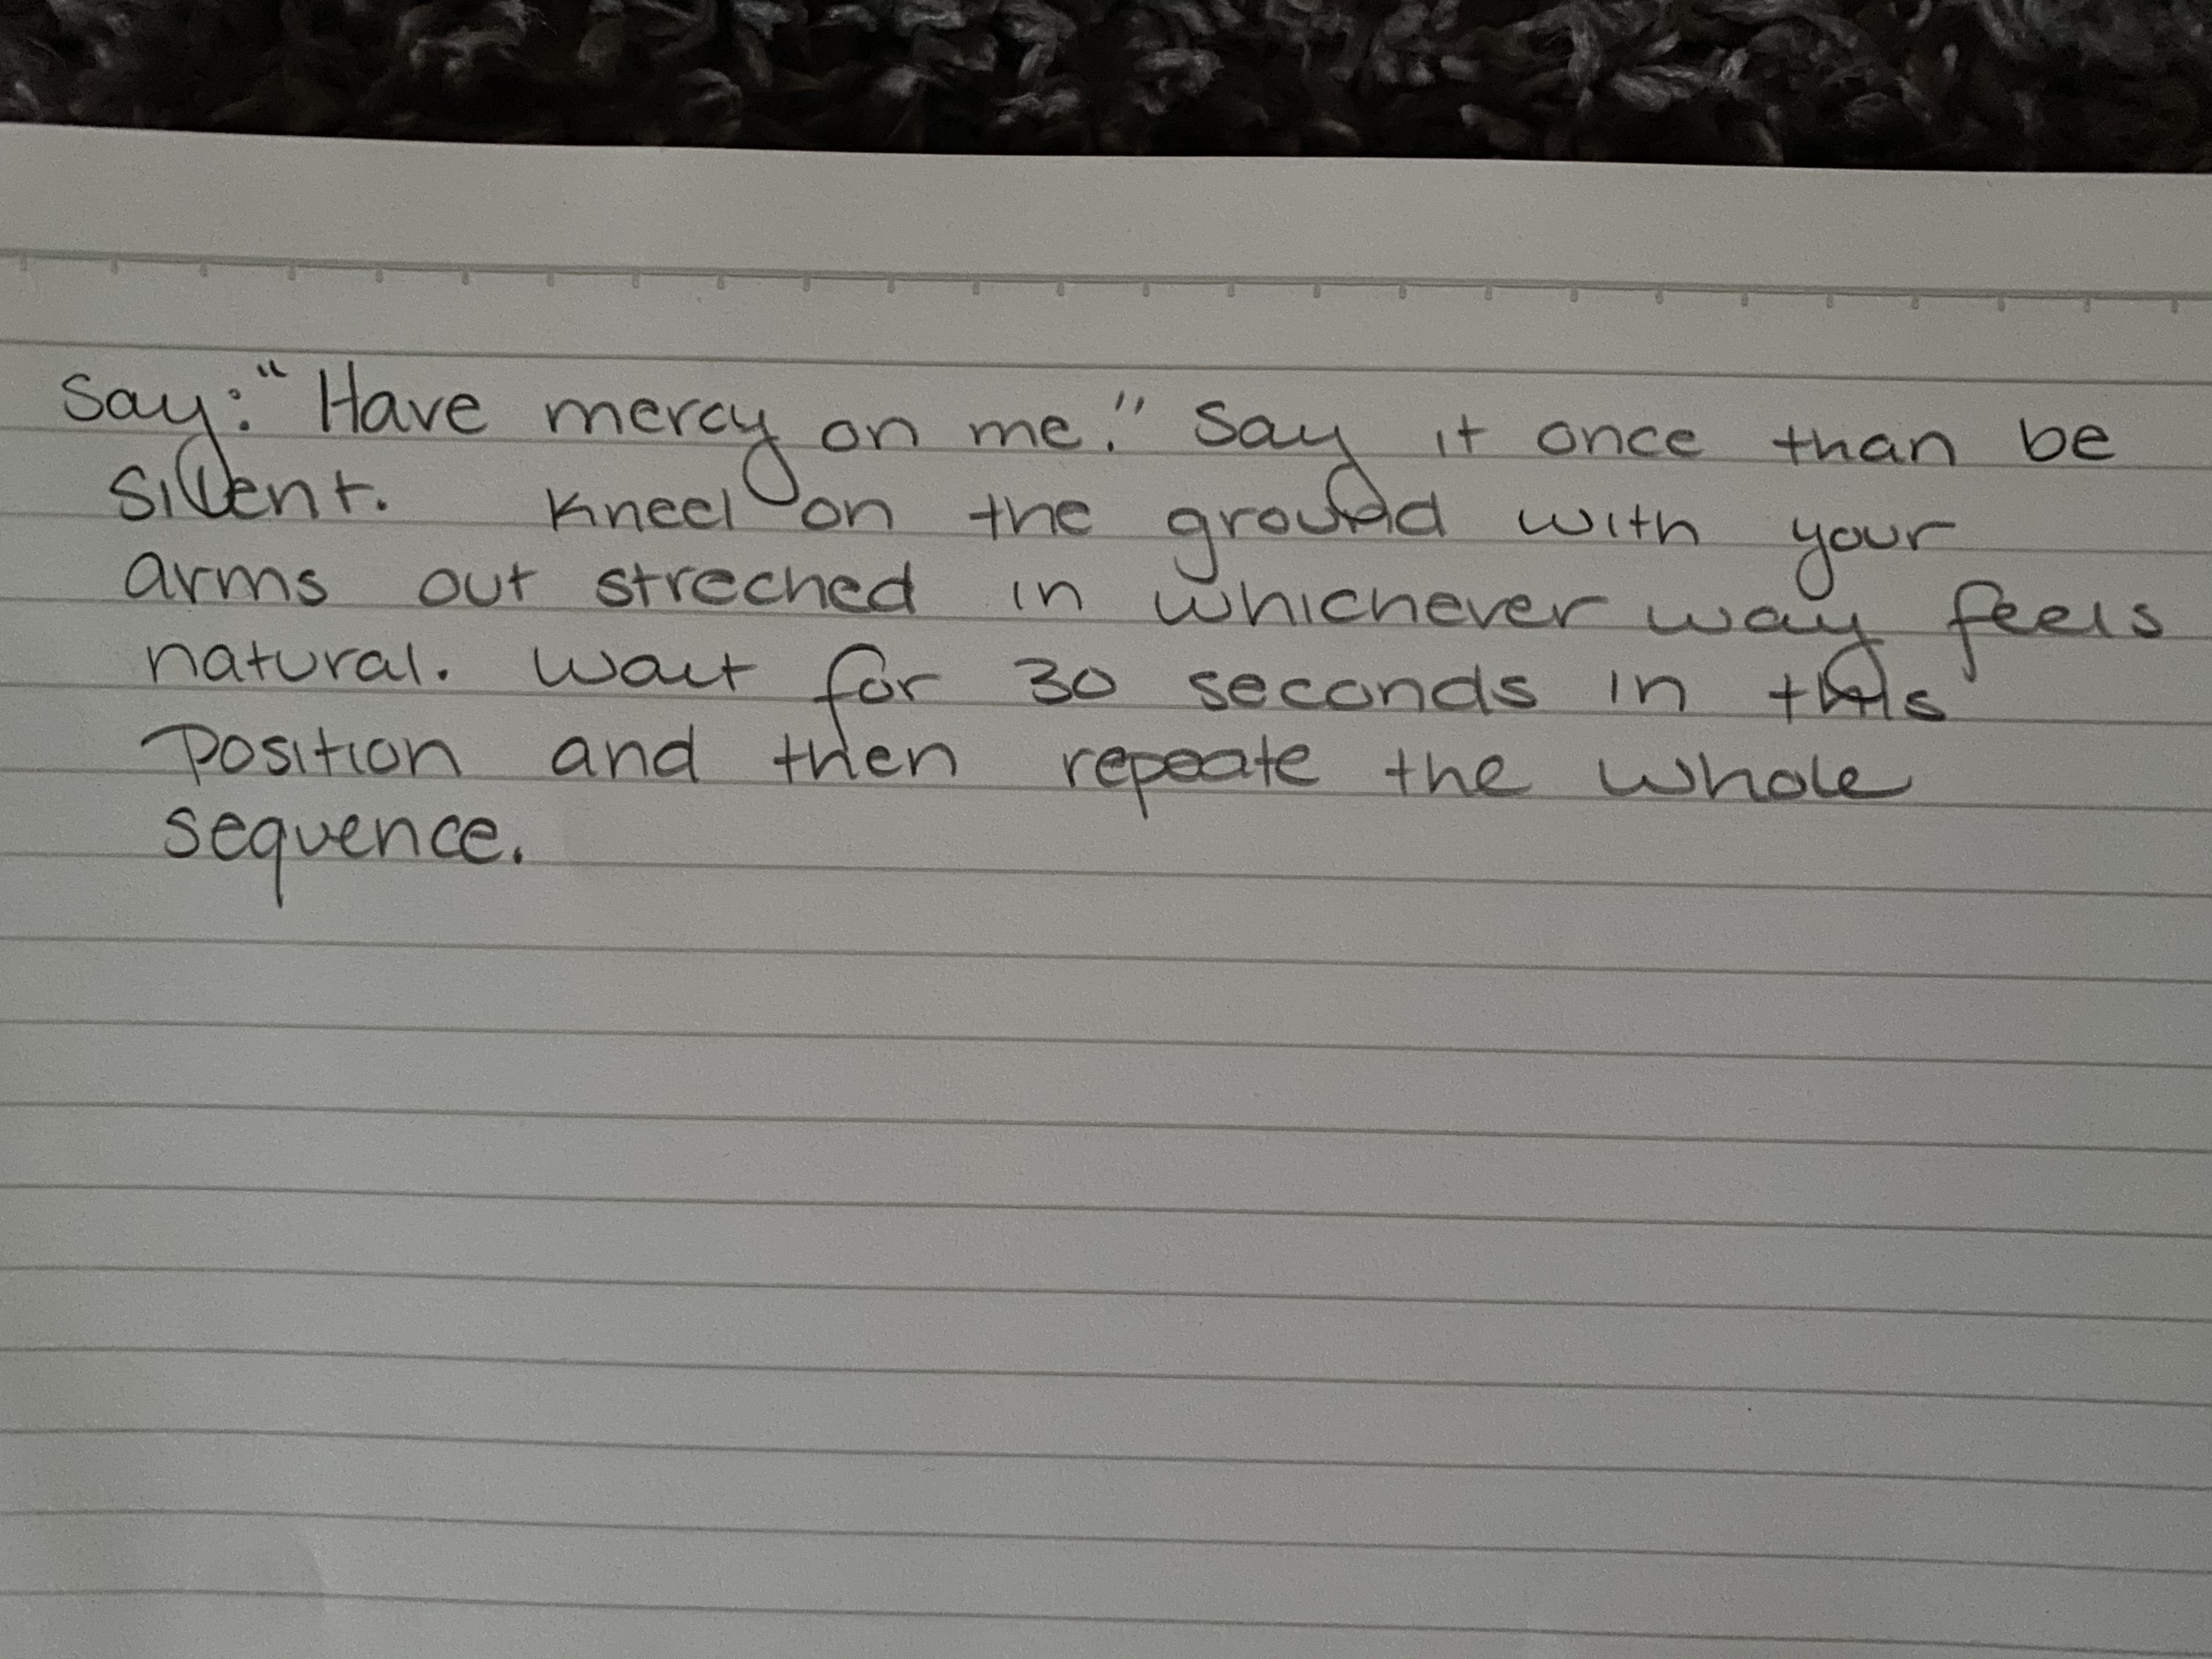 Say: "Have mercy on me." Say it once than be
silent. Kneel on the ground with your
arms out streched in whichever way feels
natural. Wait for 30 seconds in this
position and then repeate the whole
sequence.